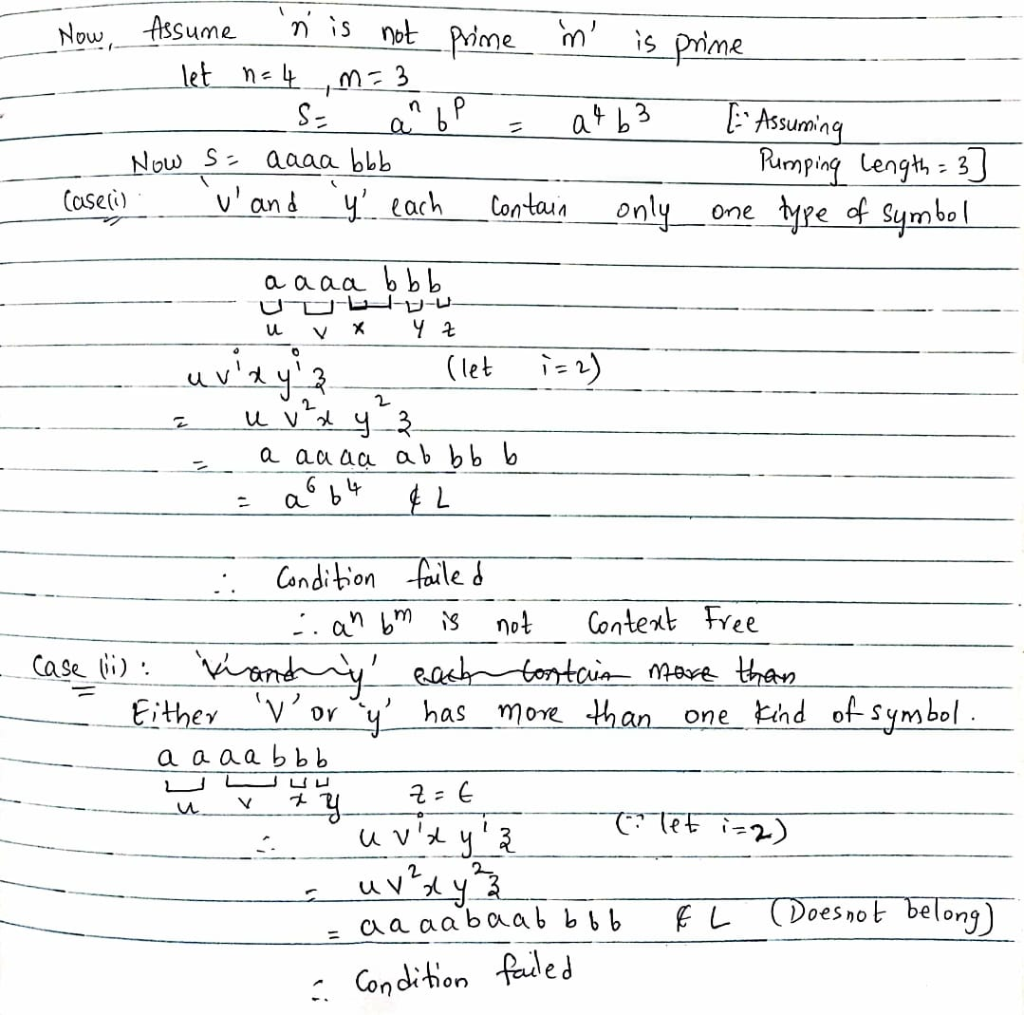 Now, Assume 'n' is not prime 'm' is prime
let n=4 , m=3
S= aⁿ bᴾ = a⁴ b³ [∵ Assuming
Now S= aaaa bbb Pumping length = 3]
Case(i) 'v' and 'y' each Contain only one type of Symbol
a a a a b b b
u v x y z
u vⁱ x yⁱ z (let i=2)
= u v² x y² z
= a aa aa ab bb b
= a⁶ b⁴ ∉ L
∴ Condition failed
∴ aⁿ bᵐ is not Context Free
Case (ii) : 'v' and 'y' each contain more than
Either 'v' or 'y' has more than one kind of symbol.
a a a a b b b
u v x y z = ϵ
∴ u vⁱ x yⁱ z (∵ let i=2)
= u v² x y² z
= aa aabaab b b b ∉ L (Doesnot belong)
∴ Condition failed